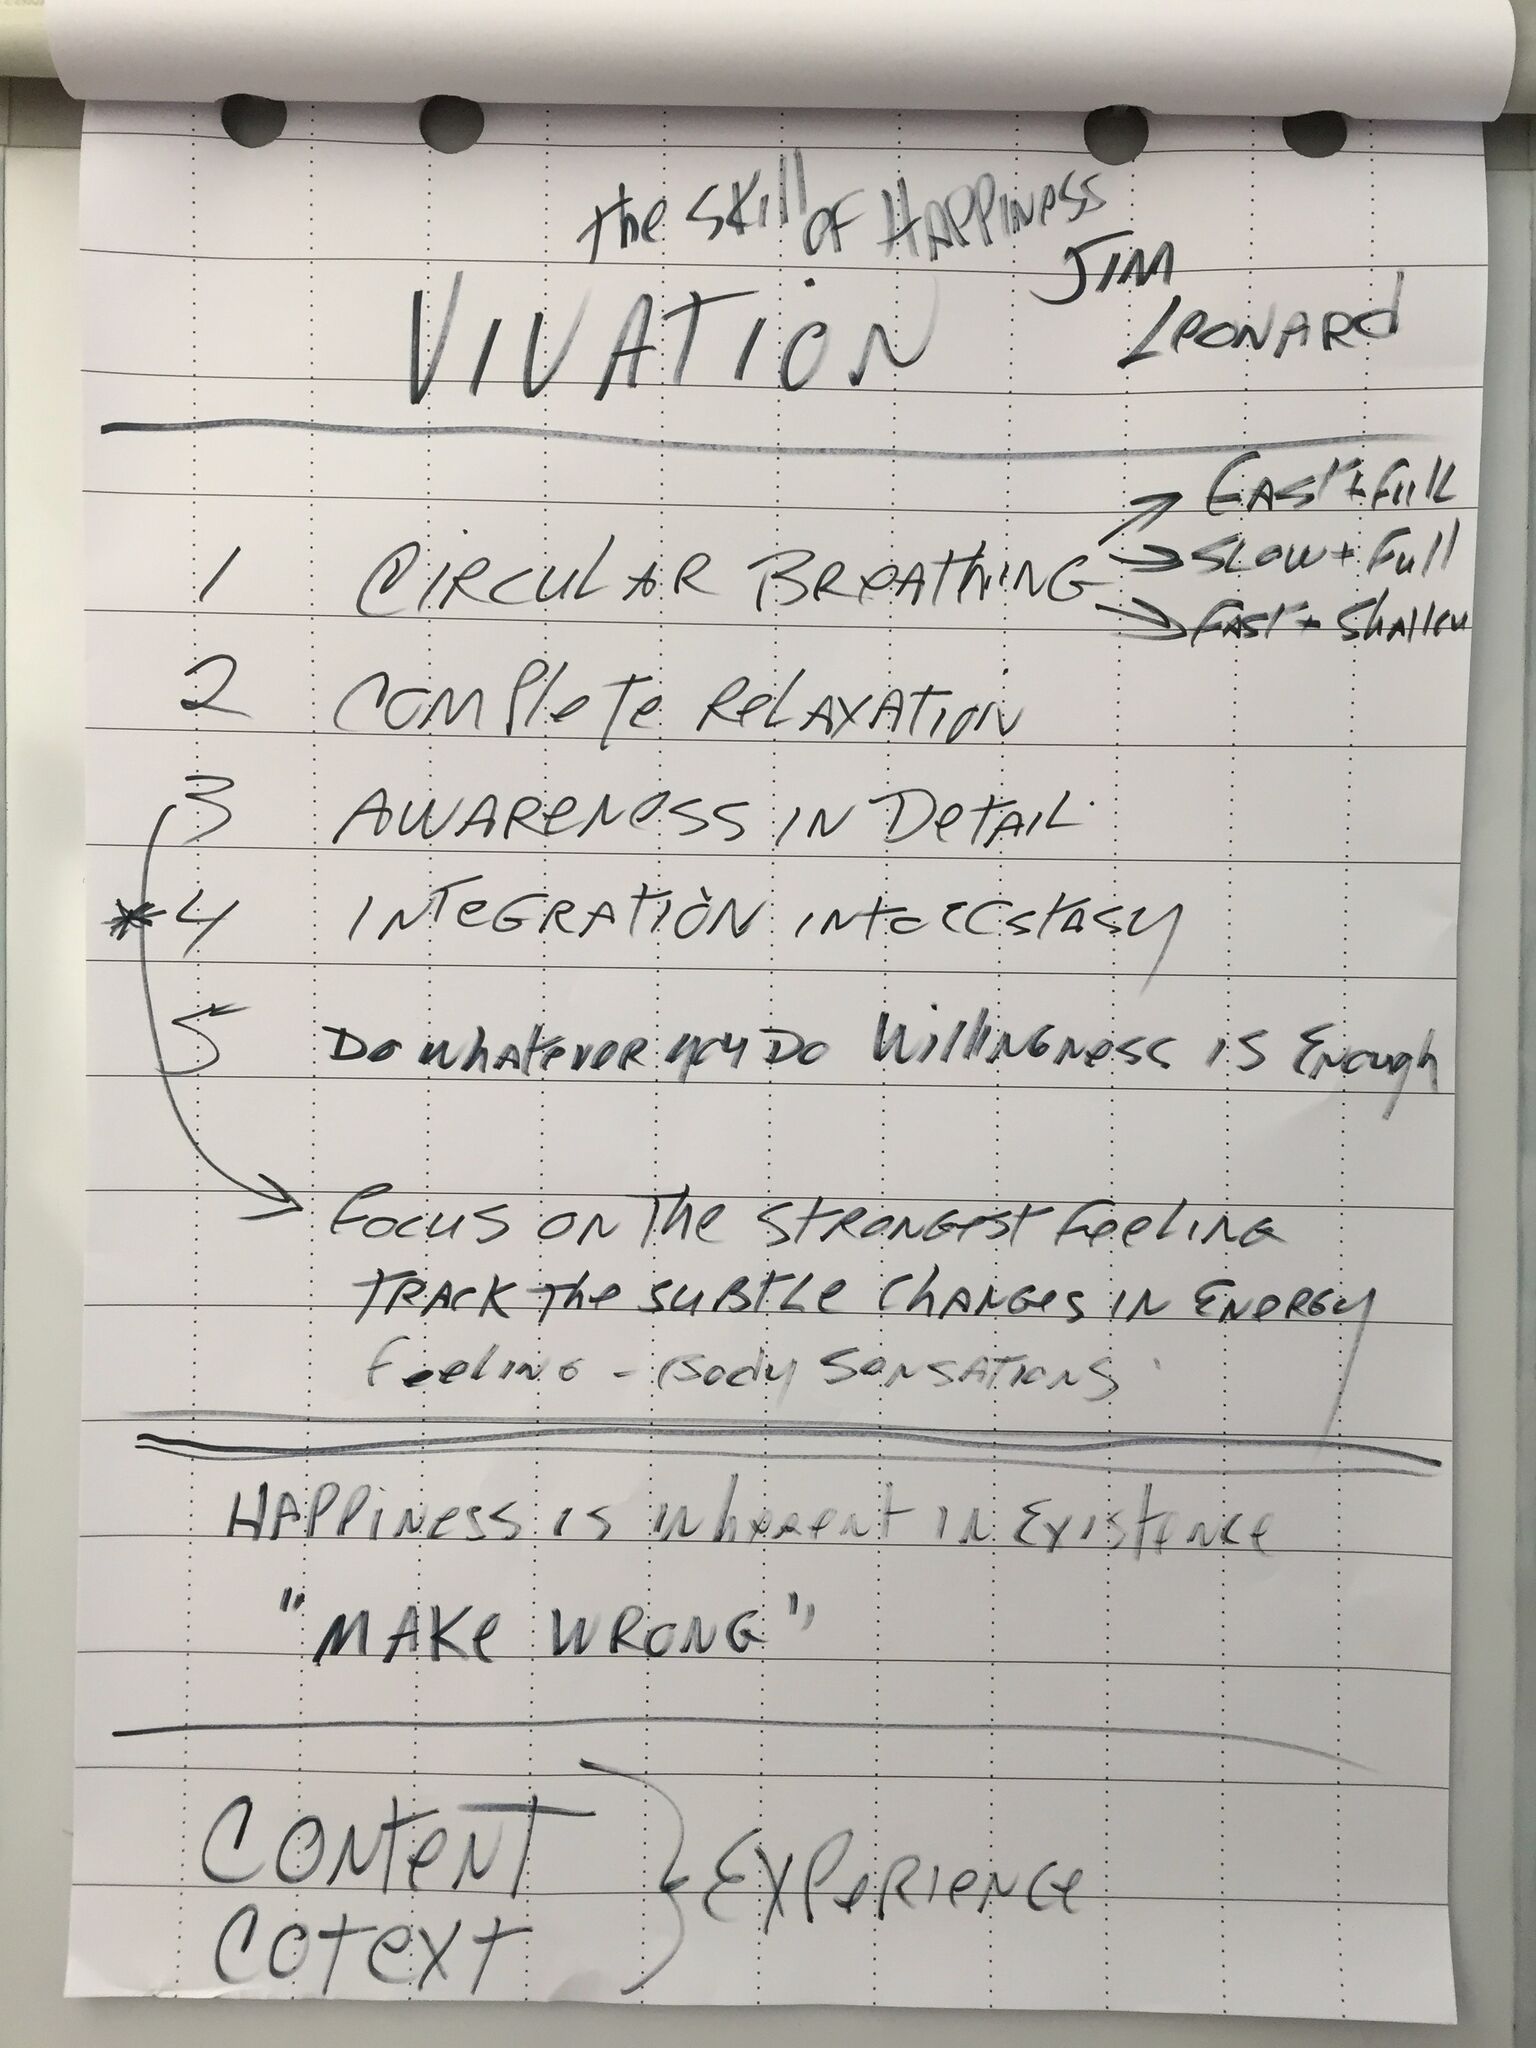 the Skill of HAPPINESS
JIM
LEONARD
VIVATION
FAST + Full
1 CIRCULAR BREATHING SLOW + Full
FAST + Shallow
2 COMPLETE RELAXATION
3 AWARENESS IN DETAIL
* 4 INTEGRATION INTO ECSTASY
5 DO WHATEVER YOU DO WILLINGNESS IS ENOUGH
FOCUS ON THE STRONGEST FEELING
TRACK THE SUBTLE CHANGES IN ENERGY
FEELING - BODY SENSATIONS
HAPPINESS IS INHERENT IN EXISTENCE
"MAKE WRONG"
CONTENT
COTEXT } EXPERIENCE